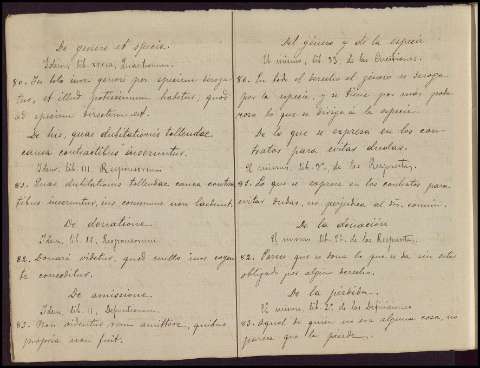 De genere et specie.
Idem, lib. XXXIII, Quaestionum.
80. In toto iure generi per speciem deroga-
tur, et illud potissimum habetur, quod
ad speciem directum est.
De his, quae dubitationis tollendae
causa contractibus inseruntur.
Idem lib. III Responsorum
81. Quae dubitationis tollendae causa contrac-
tibus inseruntur, ius commune non laedunt.
De donatione.
Idem, lib. II, Responsorum
82. Donari videtur, quod nullo iure cogen-
te conceditur.
De amissione.
Idem lib. II, Definitionum.
83. Non videntur rem amittere, quibus
propria non fuit.
Del género y de la especie
El mismo, lib. 33, de las Cuestiones.
80. En todo el derecho el género se deroga
por la especie, y se tiene por mas pode
roso lo que se dirige a la especie.
De lo que se expresa en los con-
tratos para evitar dudas.
El mismo, lib. 3º, de las Respuestas.
81. Lo que se exprese en los contratos para
evitar dudas, no perjudica al dro. comun.
De la donación
El mismo, lib. 2º, de las Respuestas.
82. Parece que se dona lo que se da sin estar
obligado por algún derecho.
De la pérdida.
El mismo, lib. 2º de las Definiciones
83. Aquel de quien no era alguna cosa, no
parece que la pierde.